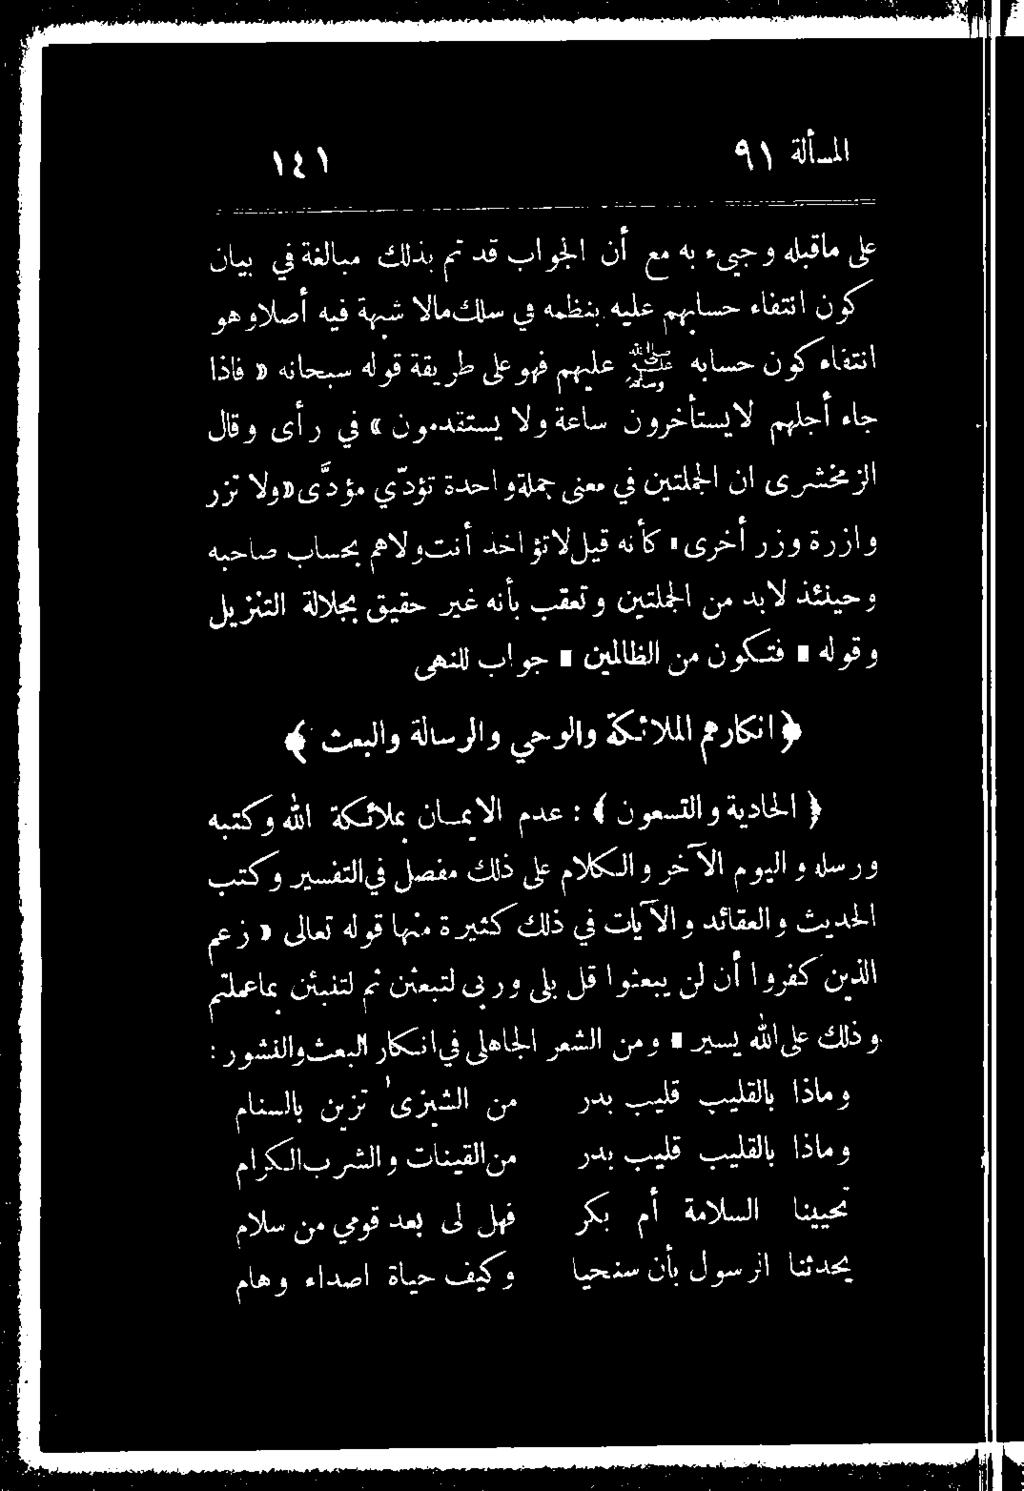 المسألة ٩١ ١٤١
على ماقبله وجيىء به مع أن الجواب قد تم بذلك مبالغة في بيان
كون انتفاء حسابهم عليه بنظمه في سلك مالا شبهة فيه أصلا وهو
انتفاء كون حسابه ﷺ عليهم فهو على طريقة قوله سبحانه « فاذا
جاء أجلهم لا يستأخرون ساعة ولا يستقدمون » في رأى وقال
الزمخشرى ان الجملتين في معنى جملة واحدة تؤدّي مؤدّى «ولا تزر
وازرة وزر أخرى » كأنه قيل لا تؤاخذ أنت ولا هم بحساب صاحبه
وحينئذ لا بد من الجملتين وتعقب بأنه غير حقيق بجلالة التنزيل
وقوله « فتكون من الظالمين » جواب للنهى
﴿ انكارهم الملائكة والوحي والرسالة والبعث ﴾
﴿ الحادية والتسعون ﴾ : عدم الايمان بملائكة الله وكتبه
ورسله واليوم الآخر والكلام على ذلك مفصل في التفسير وكتب
الحديث والعقائد والآيات في ذلك كثيرة منها قوله تعالى « زعم
الذين كفروا أن لن يبعثوا قل بلى وربى لتبعثن ثم لتنبئن بما عملتم
وذلك على الله يسير » ومن الشعر الجاهلى في انكار البعث والنشور :
وماذا بالقليب قليب بدر من الشيزى تزين بالسنام
وماذا بالقليب قليب بدر من القينات والشرب الكرام
تحيينا السلامة أم بكر فهل لى بعد قومي من سلام
يحدثنا الرسول بأن سنحيا وكيف حياة اصداء وهام